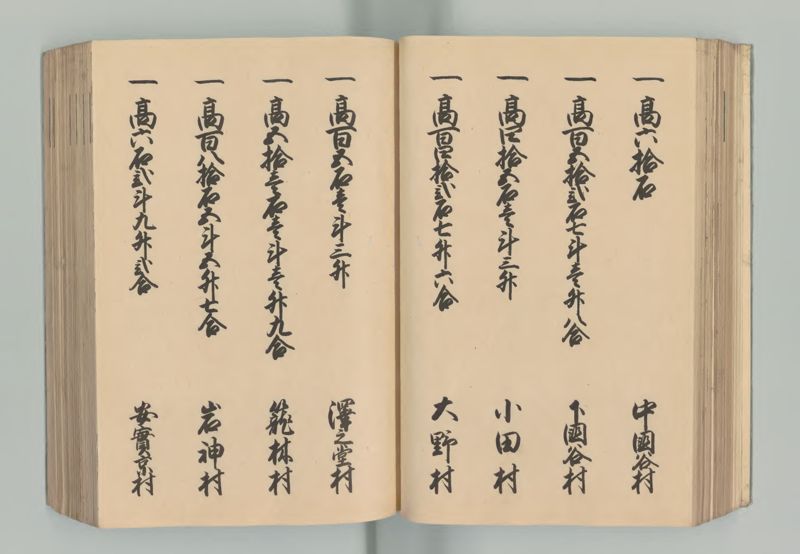 一高六拾石 中國谷村
一高百五拾弐石七斗壱升八合 下國谷村
一高四拾五石壱斗三升 小田村
一高百四拾弐石七升六合 大野村
一高百五石壱斗三升 澤之堂村
一高五拾壱石壱斗壱升九合 籠林村
一高百八拾石五斗五升七合 岩神村
一高六石弐斗九升弐合 安實京村